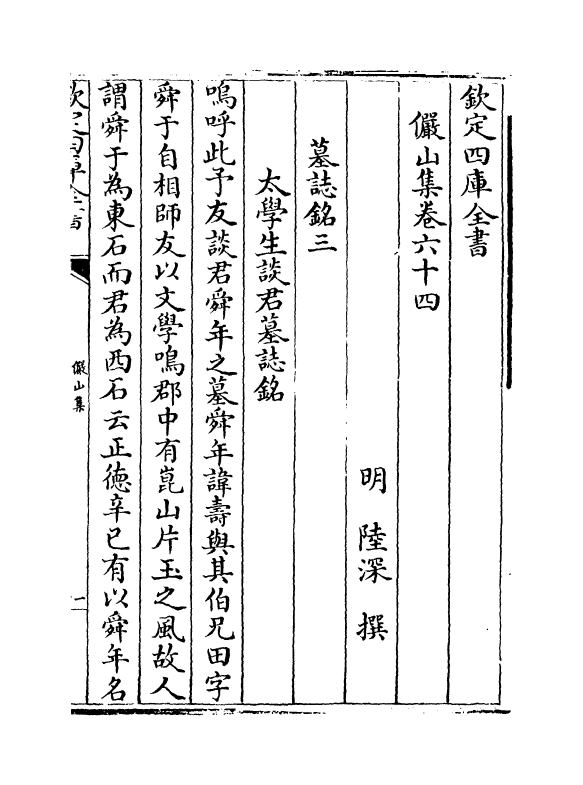 欽定四庫全書
儼山集卷六十四
明 陸深 撰
墓誌銘三
太學生談君墓誌銘
嗚呼此予友談君舜年之墓舜年諱壽與其伯兄田字
舜于自相師友以文學鳴郡中有崑山片玉之風故人
謂舜于為東石而君為西石云正德辛巳有以舜年名
儼山集